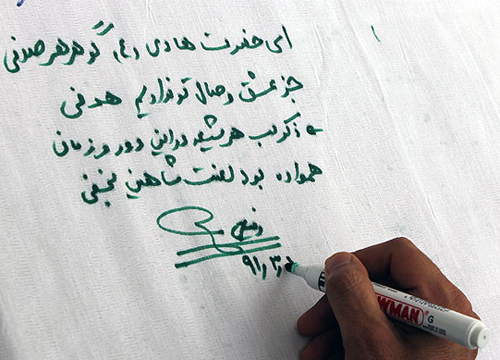 ای حضرت هادی (ع) گوهر هر صدفی
جز عشق وصال تو نداریم هدفی
ذکر لب هر شیعه در این دور و زمان
همواره بود لعنت شاهین نجفی
۹۱٫۳٫
WMAN G